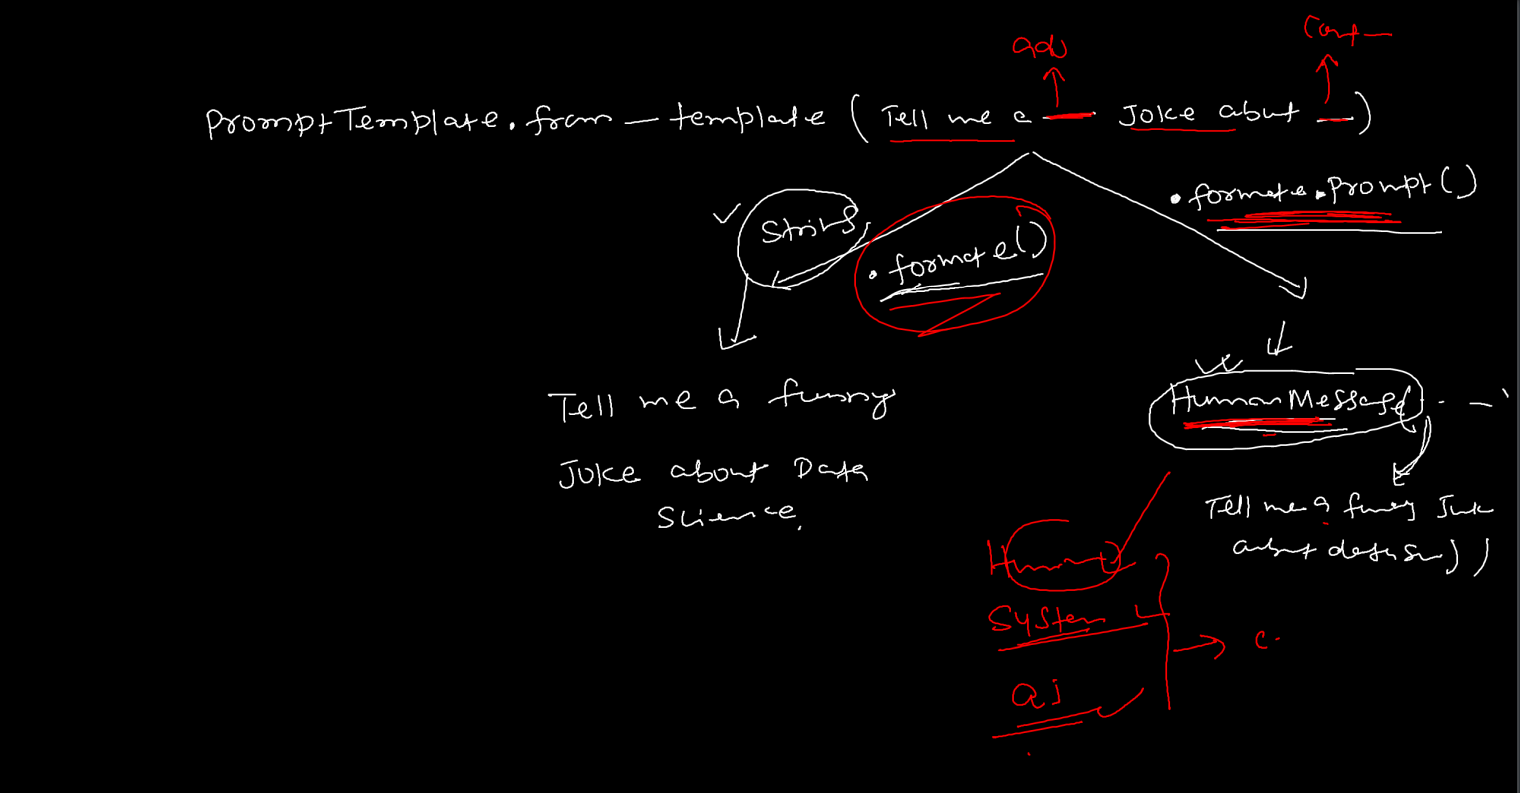 adj
Cont
PromptTemplate.from_template ( Tell me a __ Joke about __ )
.formate.Prompt()
String
.formate()
Tell me a funny
Joke about Data
Science.
HumanMessage(
Tell me a funny Joke
about
Human
System
ai
c.